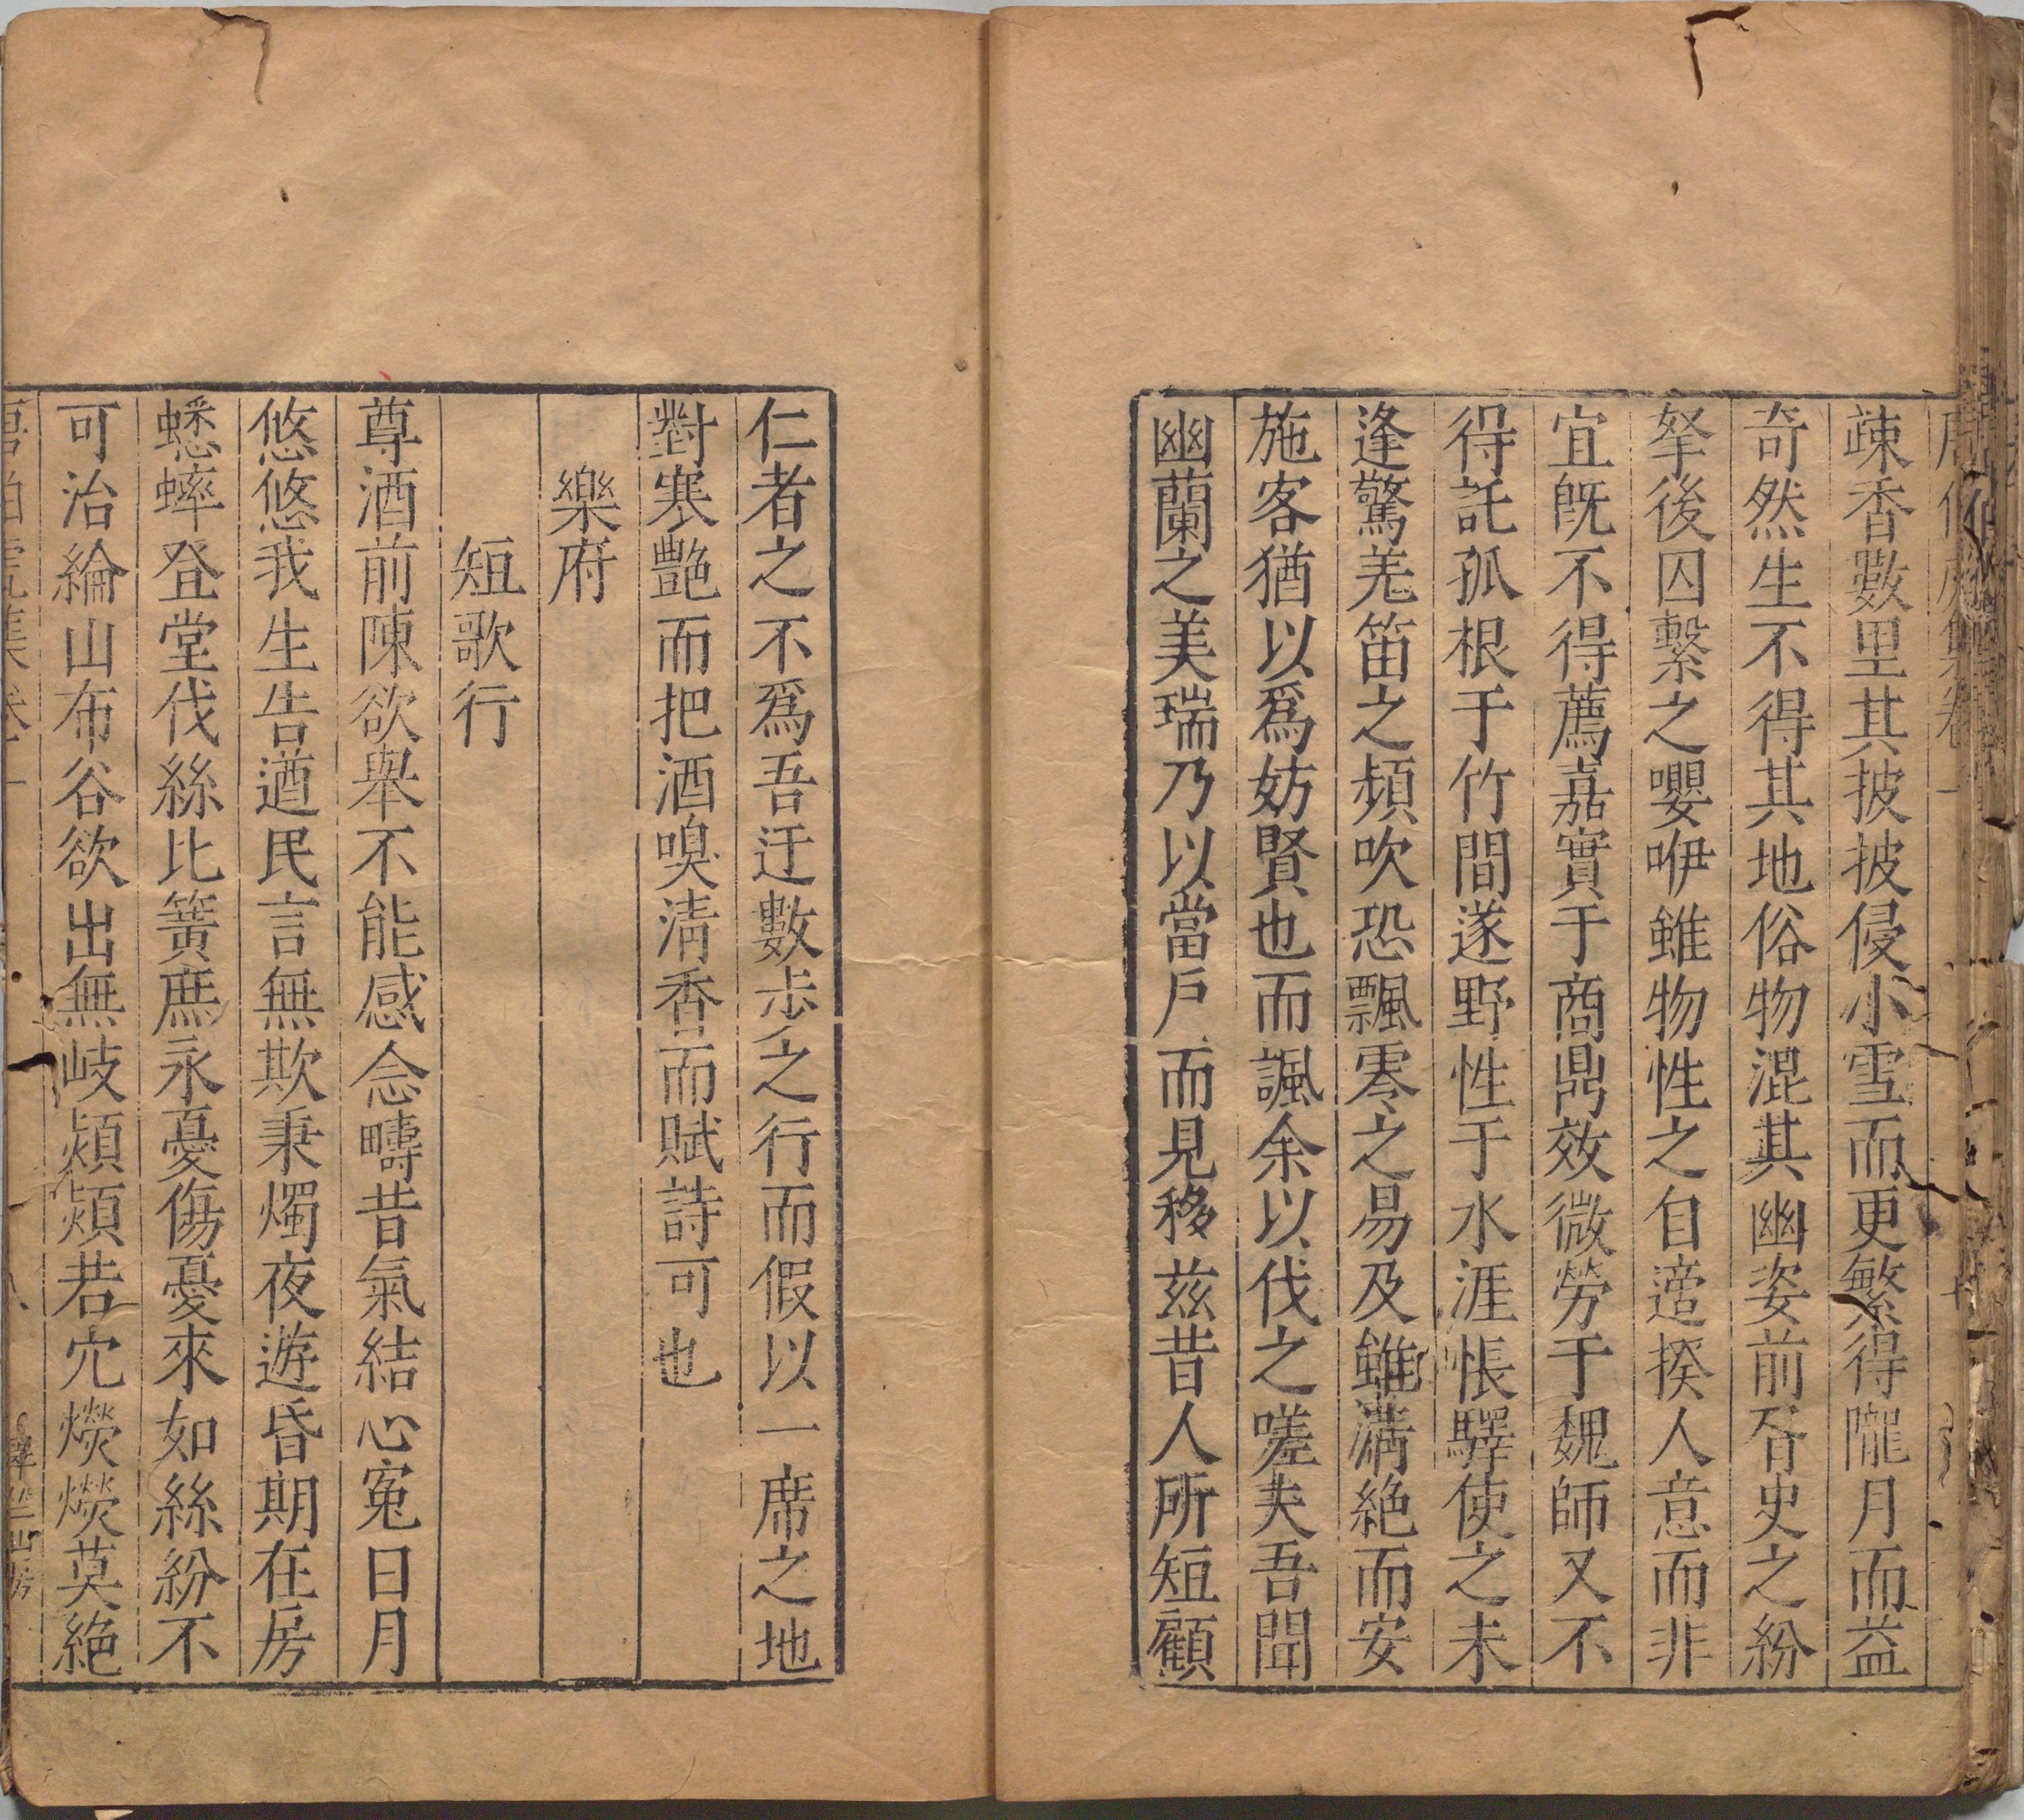 疎香數里其披披侵小雪而更繁得隴月而益
奇然生不得其地俗物混其幽姿前胥史之紛
拏後囚繫之嚶咿雖物性之自適揆人意而非
宜旣不得薦嘉實于商鼎效微勞于魏師又不
得託孤根于竹間遂野性于水涯悵驛使之未
逢驚羌笛之頻吹恐飄零之易及雖溝絶而安
施客猶以爲妨賢也而諷余以伐之嗟夫吾聞
幽蘭之美瑞乃以當戶而見移茲昔人所短顧
仁者之不爲吾迂數步之行而假以一席之地
對寒艷而把酒嗅淸香而賦詩可也
樂府
短歌行
尊酒前陳欲舉不能感念疇昔氣結心寃日月
悠悠我生告遒民言無欺秉燭夜遊昏期在房
蟋蟀登堂伐絲比簧庶永憂傷憂來如絲紛不
可治綸山布谷欲出無岐熲熲若穴熒熒莫絶
唐伯虎集卷一
八